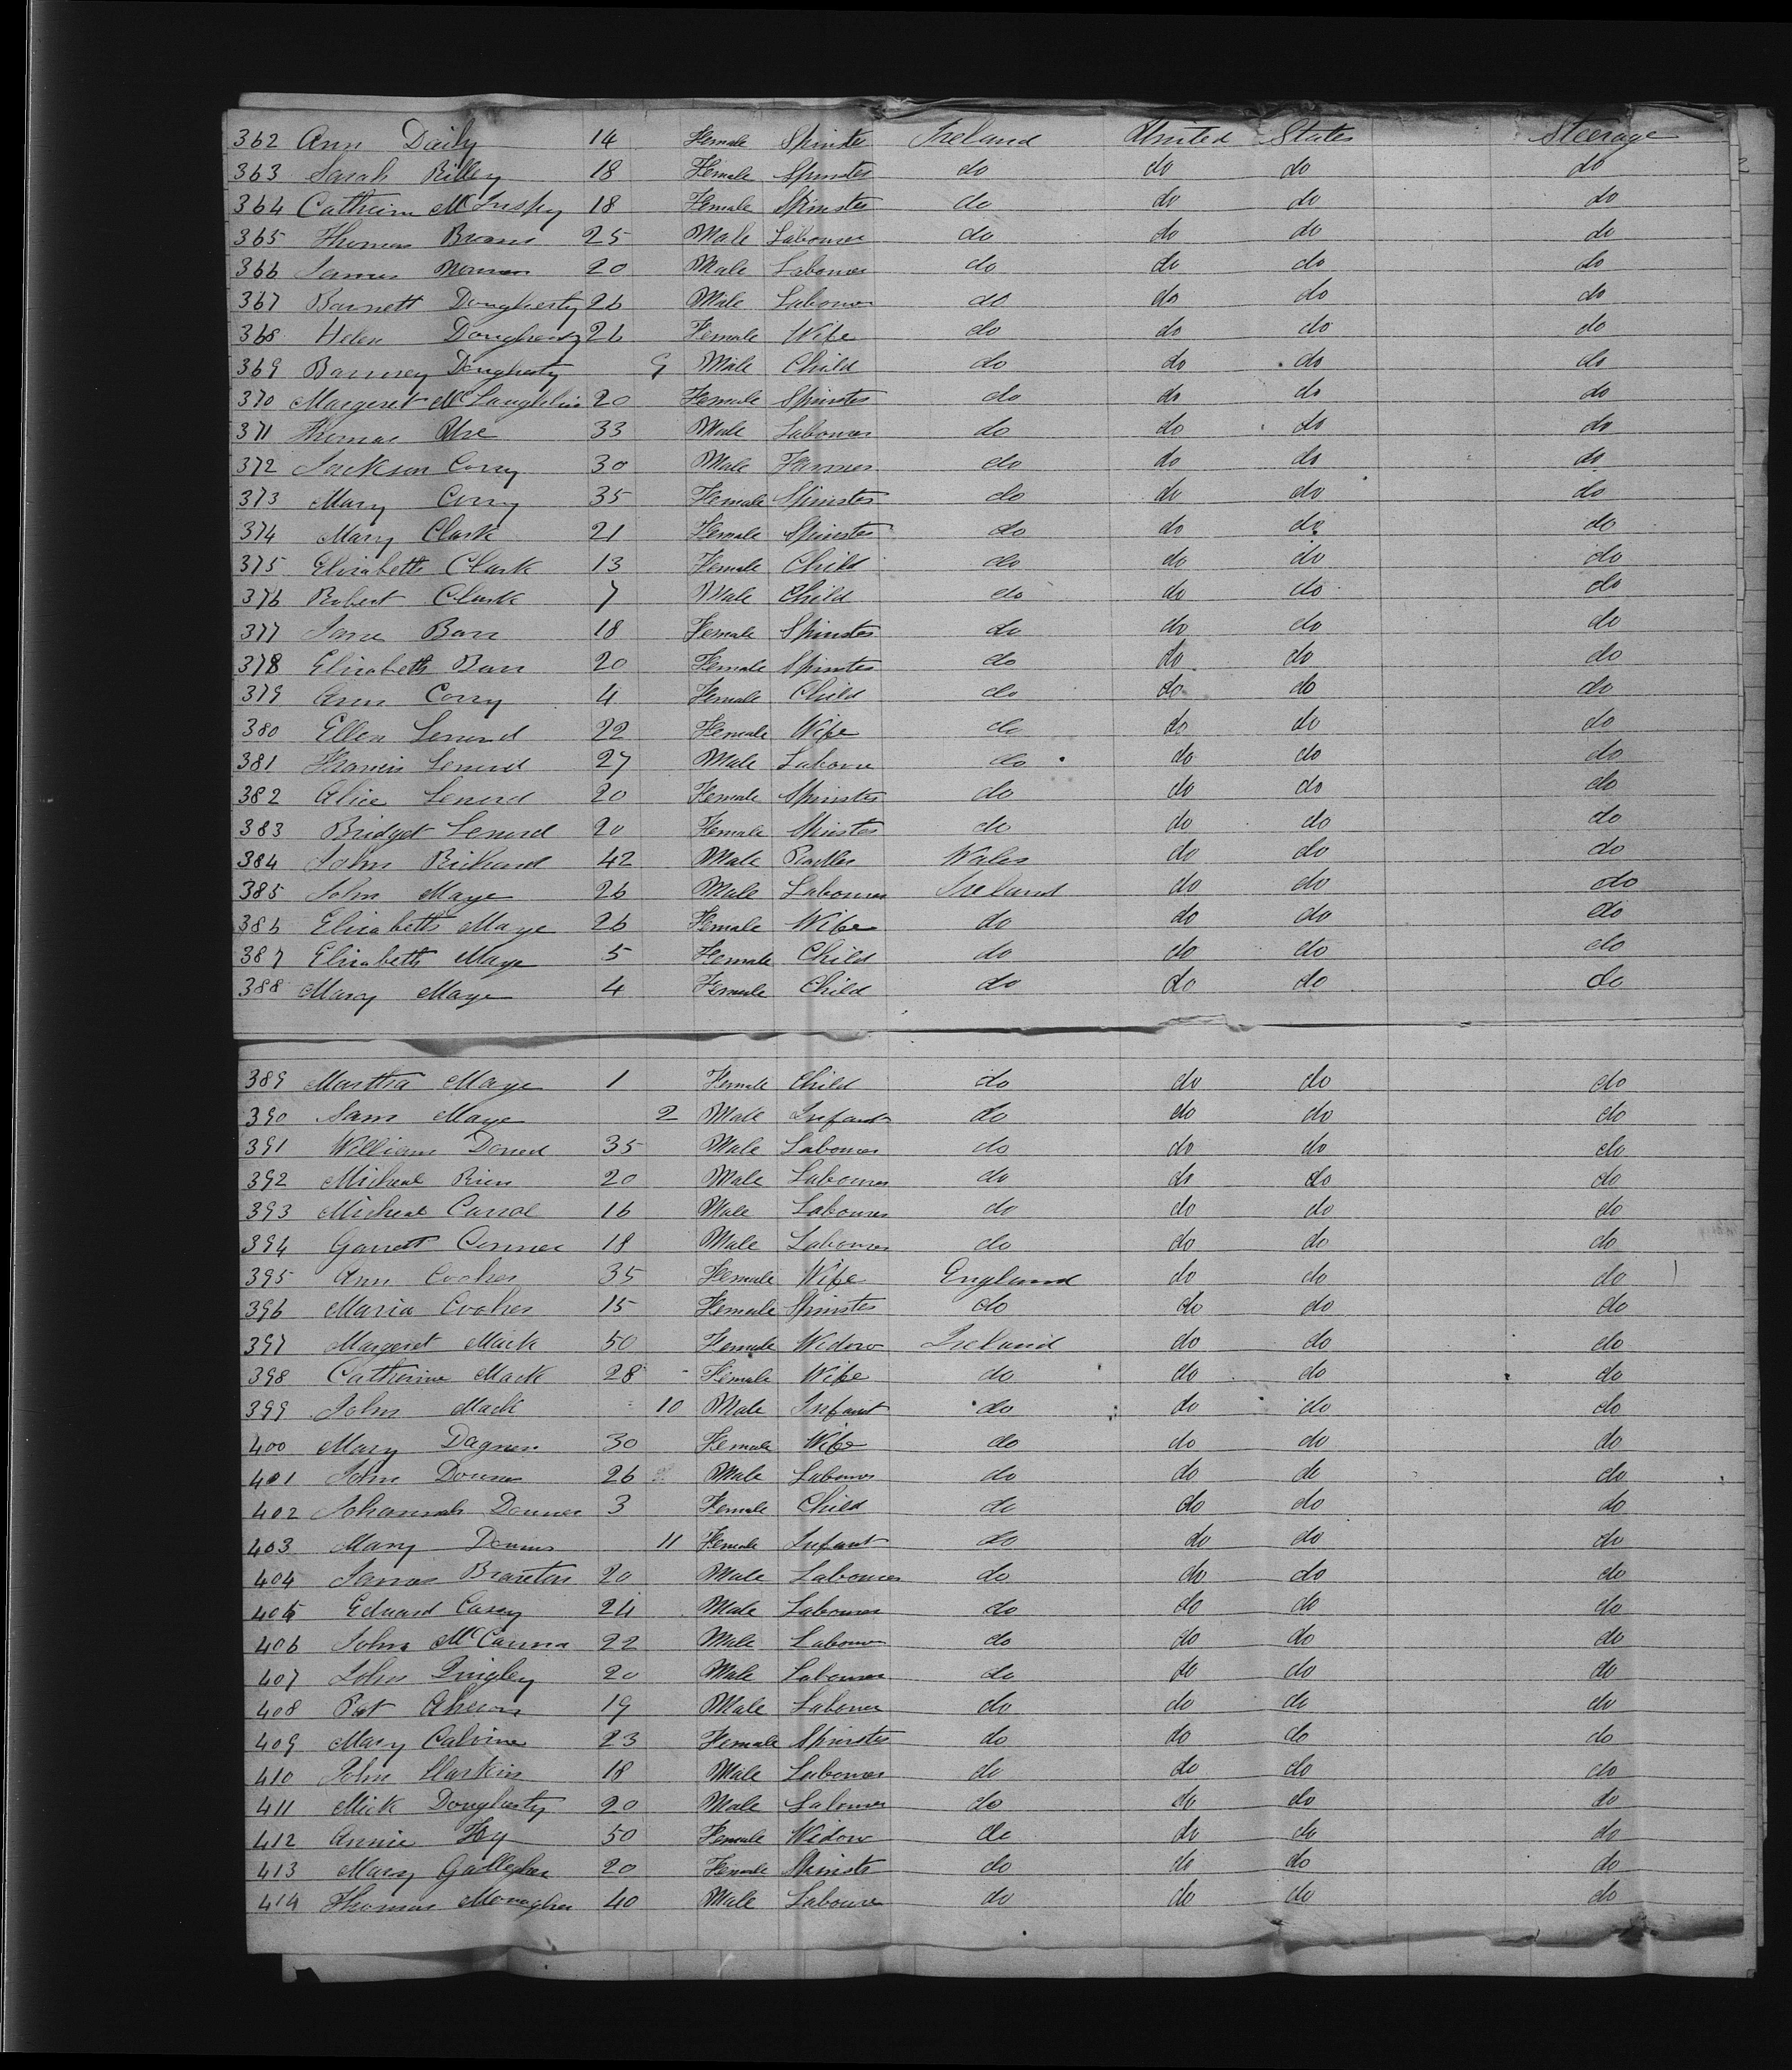 362 Ann Daily 14 Female Spinster Ireland United States Steerage
363 Sarah Rilley 18 Female Spinster do do do do
364 Catherine 18 Female Spinster do do do do
365 Thomas 25 Male Labourer do do do do
366 James 20 Male Labourer do do do do
367 Barnett Dougherty 26 Male Labourer do do do do
368 Helen Dougherty 26 Female Wife do do do do
369 Barney Dougherty 9 Male Child do do do do
370 Margeret McLaughlin 20 Female Spinster do do do do
371 Thomas Ure 33 Male Labourer do do do do
372 Jackson Corry 30 Male Farmer do do do do
373 Mary Corry 35 Female Spinster do do do do
374 Mary Clark 21 Female Spinster do do do do
375 Elizabeth Clark 13 Female Child do do do do
376 Robert Clark 7 Male Child do do do do
377 Jane Barr 18 Female Spinster do do do do
378 Elizabeth Barr 20 Female Spinster do do do do
379 Ann Corry 4 Female Child do do do do
380 Ellen Lenord 22 Female Wife do do do do
381 Francis Lenord 27 Male Laboure do do do do
382 Alice Lenord 20 Female Spinster do do do do
383 Bridget Lenord 20 Female Spinster do do do do
384 John Richard 42 Male Wales do do do
385 John Maye 26 Male Labourer Ireland do do do
386 Elizabeth Maye 26 Female Wife do do do do
387 Elizabeth Maye 5 Female Child do do do do
388 Mary Maye 4 Female Child do do do do
389 Martha Maye 1 Female Child do do do do
390 Sam Maye 2 Male Infant do do do do
391 William 35 Male Labourer do do do do
392 Micheal 20 Male Labourer do do do do
393 Micheal Carrol 16 Male Labourer do do do do
394 Garrett Conner 18 Male Labourer do do do do
395 Ann Cooher 35 Female Wife England do do do
396 Maria Cooher 15 Female Spinster do do do do
397 Margeret Mack 50 Female Widow Ireland do do do
398 Catherine Mack 28 Female Wife do do do do
399 John Mack 10 Male Infant do do do do
400 Mary Dagnen 30 Female Wife do do do do
401 John 26 Male Labourer do do do do
402 Johannah 3 Female Child do do do do
403 Mary 11 Female Infant do do do do
404 James Branton 20 Male Labourer do do do do
405 Edward Casey 24 Male Labourer do do do do
406 John McCanna 22 Male Labourer do do do do
407 John Quigley 20 Male Labourer do do do do
408 Pat Ahern 19 Male Labourer do do do do
409 Mary Calvine 23 Female Spinster do do do do
410 John Harkin 18 Male Labourer do do do do
411 Mick Dougherty 20 Male Labourer do do do do
412 Annie Foy 50 Female Widow do do do do
413 Mary Gallegher 20 Female Spinster do do do do
414 Thomas Monagher 40 Male Laboure do do do do